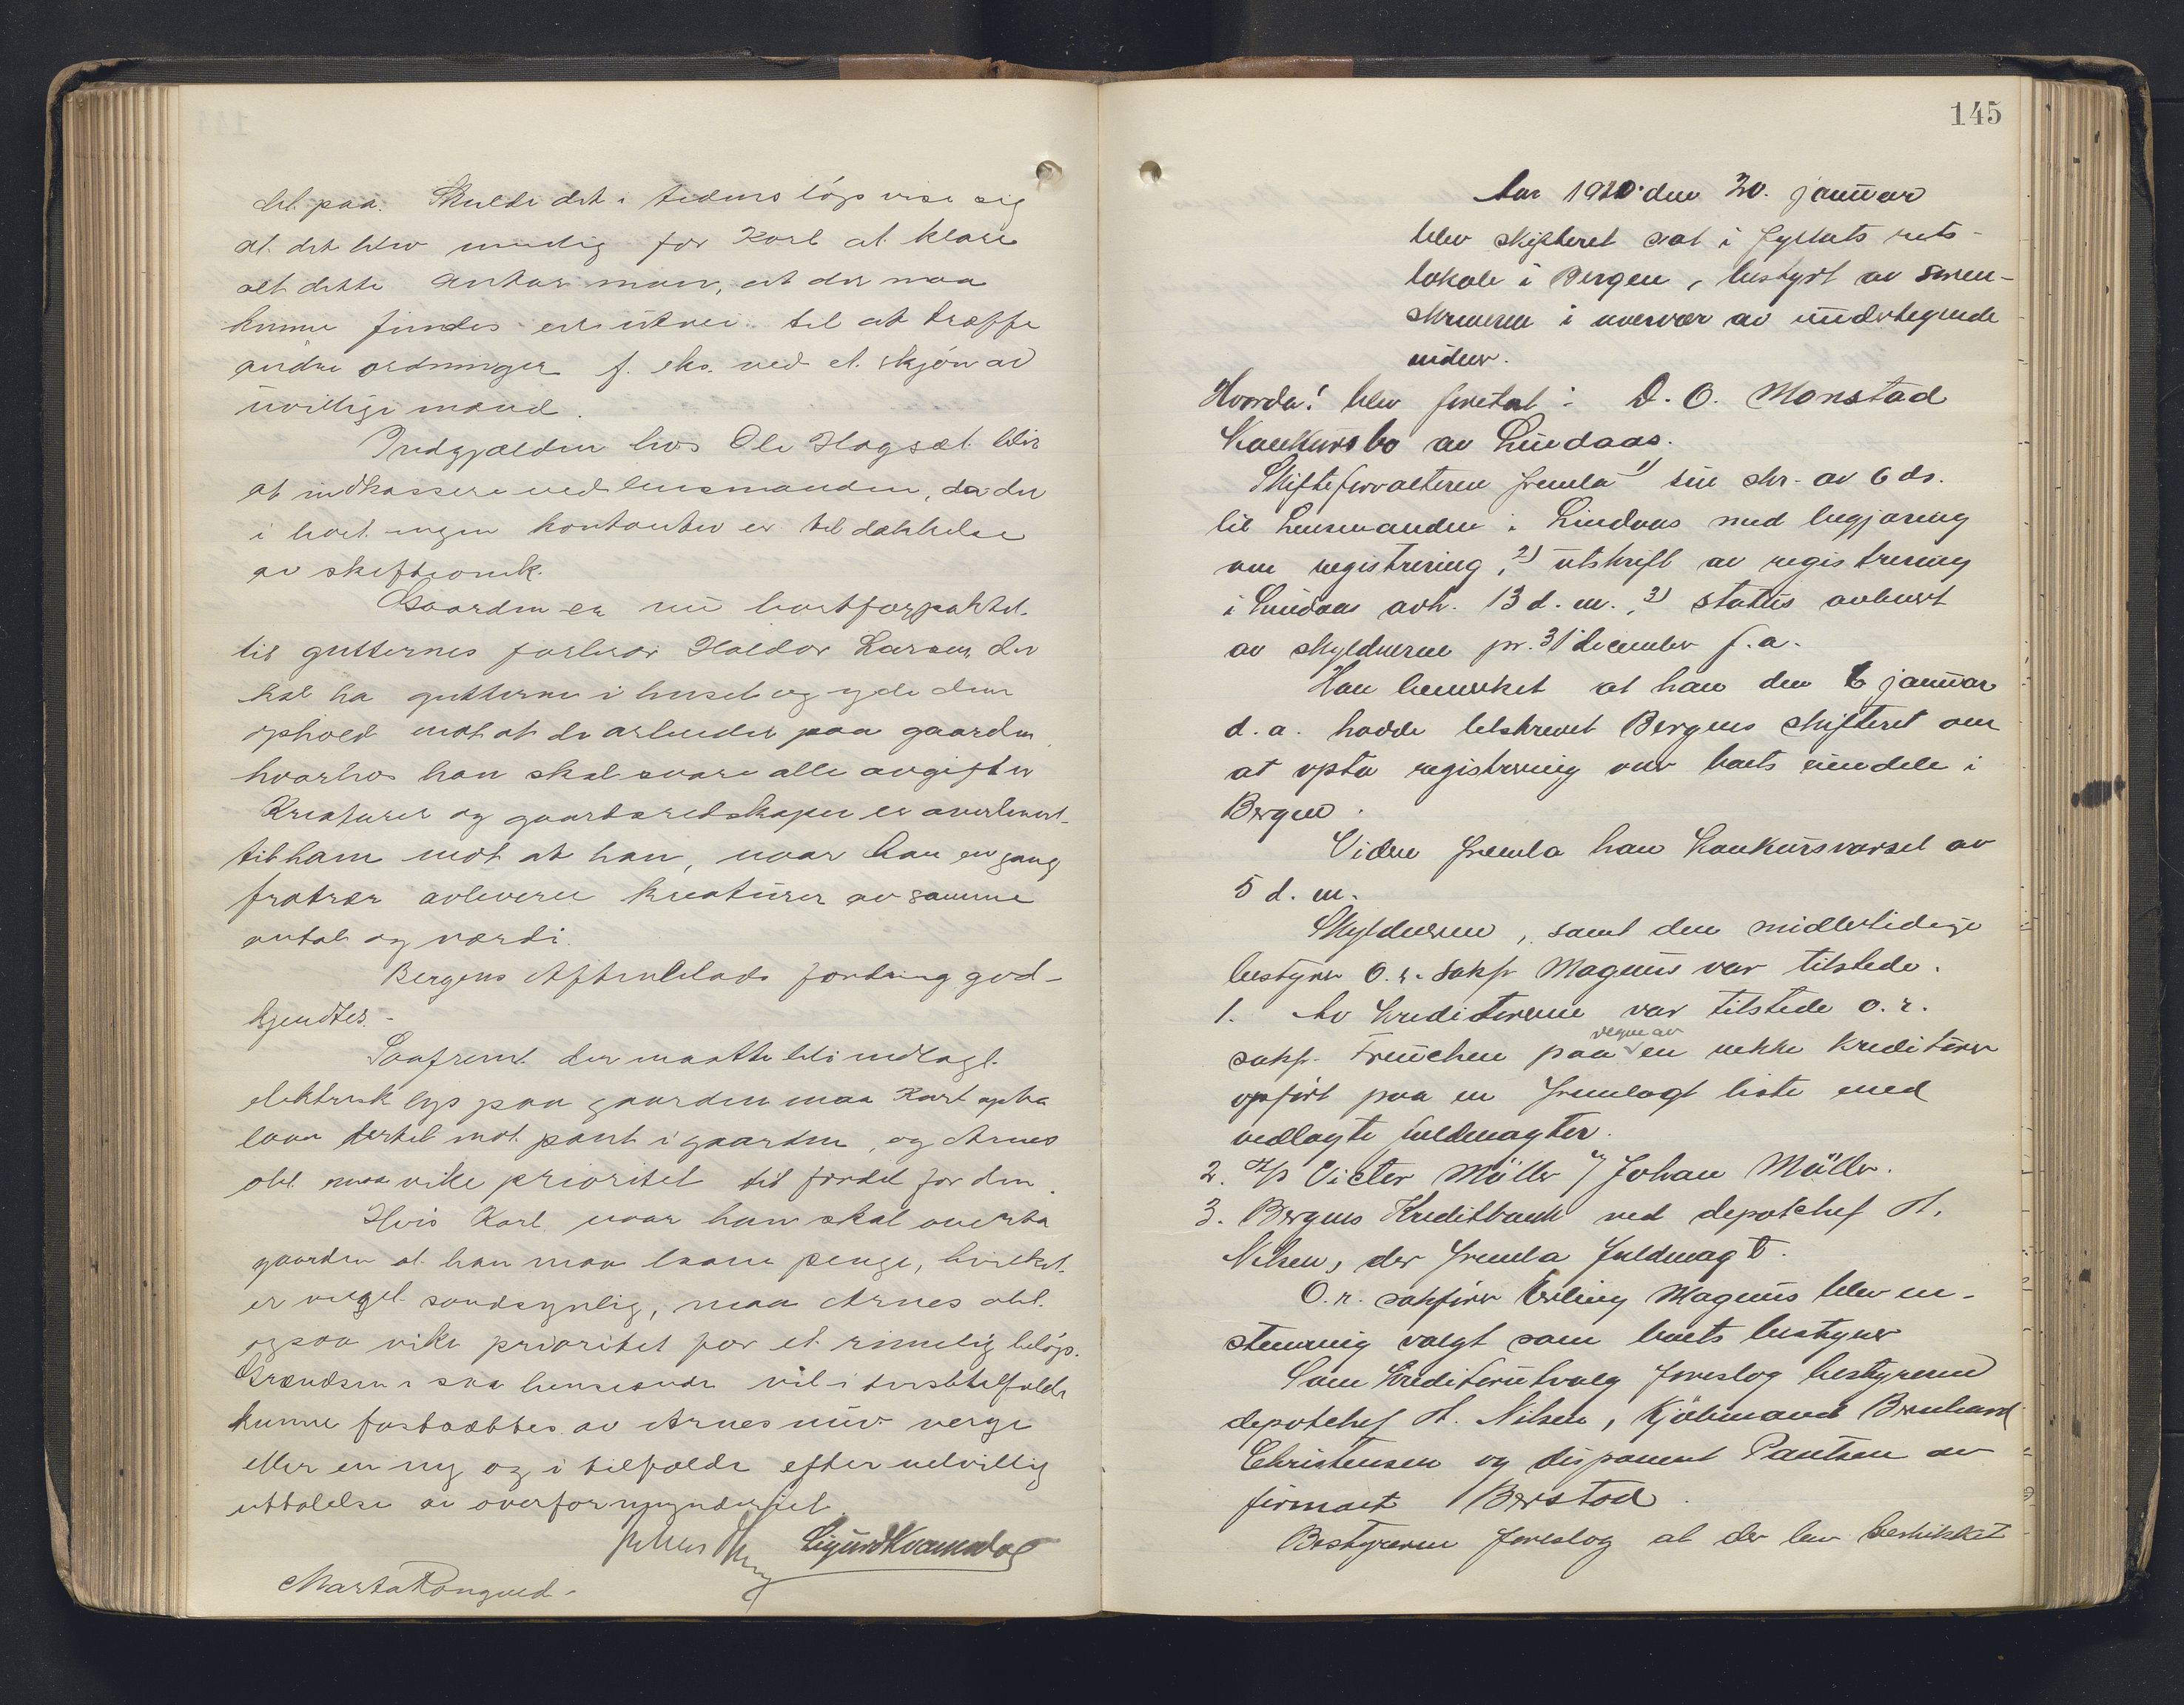 det paa. Skulde det i tidens løp vise sig
at det blev umulig for Karl at klare
alt dette antar man, at der maa
kunne findes en utvei til at træffe
andre ordninger f. eks. ved et skjøn av
uvillige mænd.
Indgjælden hos Ole Hagsæt blir
at indkassere ved lensmanden, da der
i boet ingen kontanter er til dækkelse
av skifteomk.
Gaarden er nu bortforpaktet
til gutternes farbror Haldor Larsen, der
skal ha gutterne i huset og yde dem
ophold mot at de arbeider paa gaarden
hvorhos han skal svare alle avgifter
Kreaturer og gaardsredskaper er overlevert
til ham mot at han, naar han en gang
fratrær avleverer kreaturer av samme
antal og værdi.
Bergens Aftenblads fordring god-
kjendtes.-
Saafremt der maatte bli indlagt
elektrisk lys paa gaarden maa Karl opta
laan dertil mot pant i gaarden, og Arnes
obl. maa vike prioritet til fordel for den.
Hvis Karl naar han skal overta
gaarden at han maa laane penge, hvilket
er meget sandsynlig, maa Arnes obl.
ogsaa vike prioritet for et rimelig beløp.
Grændsen i saa henseende vil i tvisttilfælde
kunne fastsættes av Arnes nuv. verge
eller en ny og i tilfælde efter velvillig
uttalelse av overformynderiet.
Sigurd Kvamsdal
Marta Rongved-
145
Aar 1920 den 20. januar
blev skifteret sat i fylkets rets-
lokale i Bergen, bestyrt av soren-
skriveren i nærvær av undertegnede
vidner.
Hvorda! blev foretat: D. O. Monstad
Konkursbo av Lindaas.
Skifteforvalteren fremla 1) sin skr. av 6 ds.
til Lensmanden i Lindaas med begjæring
om registrering, 2) utskrift av registrering
i Lindaas avh. 13 d. m., 3) status avlevert
av skyldneren pr. 31 december f. a.
Han bemerket at han den 6 januar
d. a. hadde tilskrevet Bergens skifteret om
at opta registrering over boets eiendele i
Bergen.
Videre fremla han Konkursvarsel av
5 d. m.
Skyldneren, samt den midlertidige
bestyrer O. r. sakf. Magnus var tilstede.
1. Av Kreditorerne var tilstede o. r.
sakf. Freuchen paa vegne av en rekke kreditorer
opført paa en fremlagt liste med
vedlagte fuldmagter.
2. A/S Victor Müller v/ Johan Müller.
3. Bergens Kreditbank ved depotchef H.
Nilsen, der fremla fuldmagt.
O. r. sakfører Erling Magnus blev en-
stemmig valgt som boets bestyrer
Som Kreditorutvalg foreslog bestyreren
depotchef H. Nilsen, Kjøbmand Bernhard
Christensen og disponent Paulsen av
firmaet Berstad.
Bestyreren foreslog at der blev beskikket